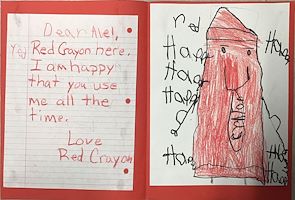 Dear Alel,
Red Red Crayon here.
I am happy
that you use
me all the
time.
Love
Red Crayon
red
Happ
Happ
Happ
Happ
Happ
Happ